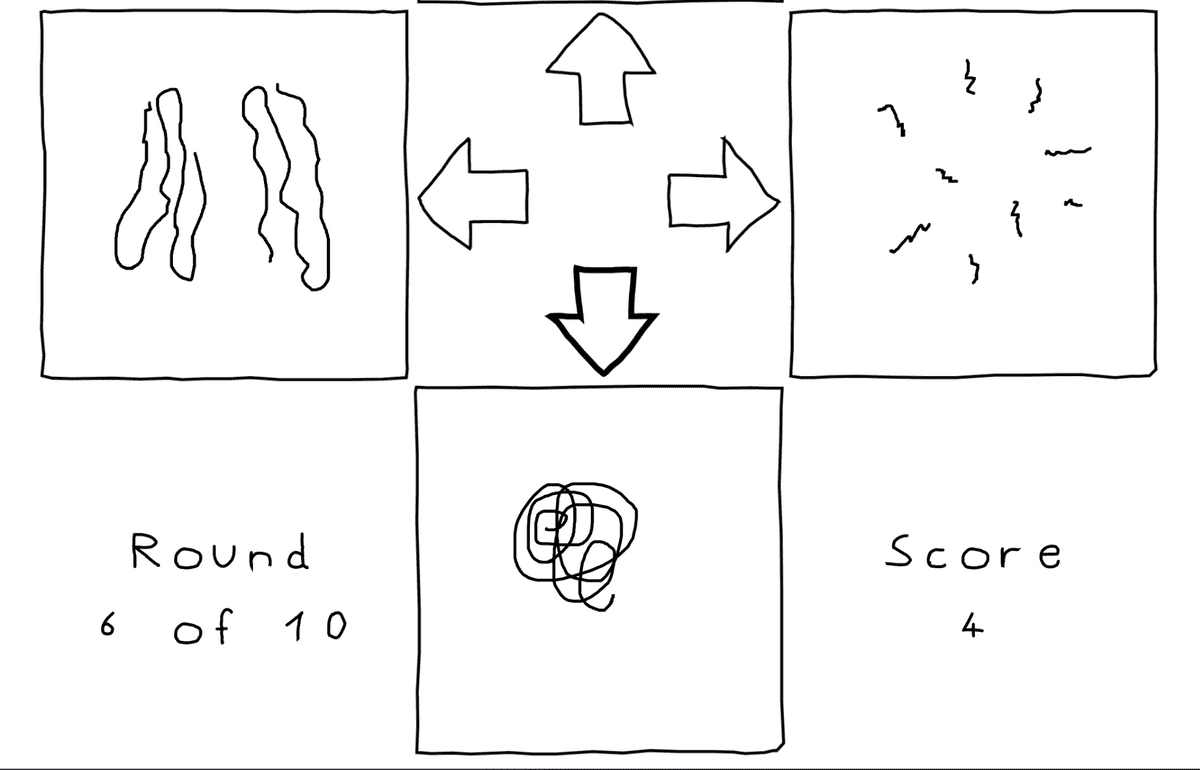 Round
6 of 10
Score
4